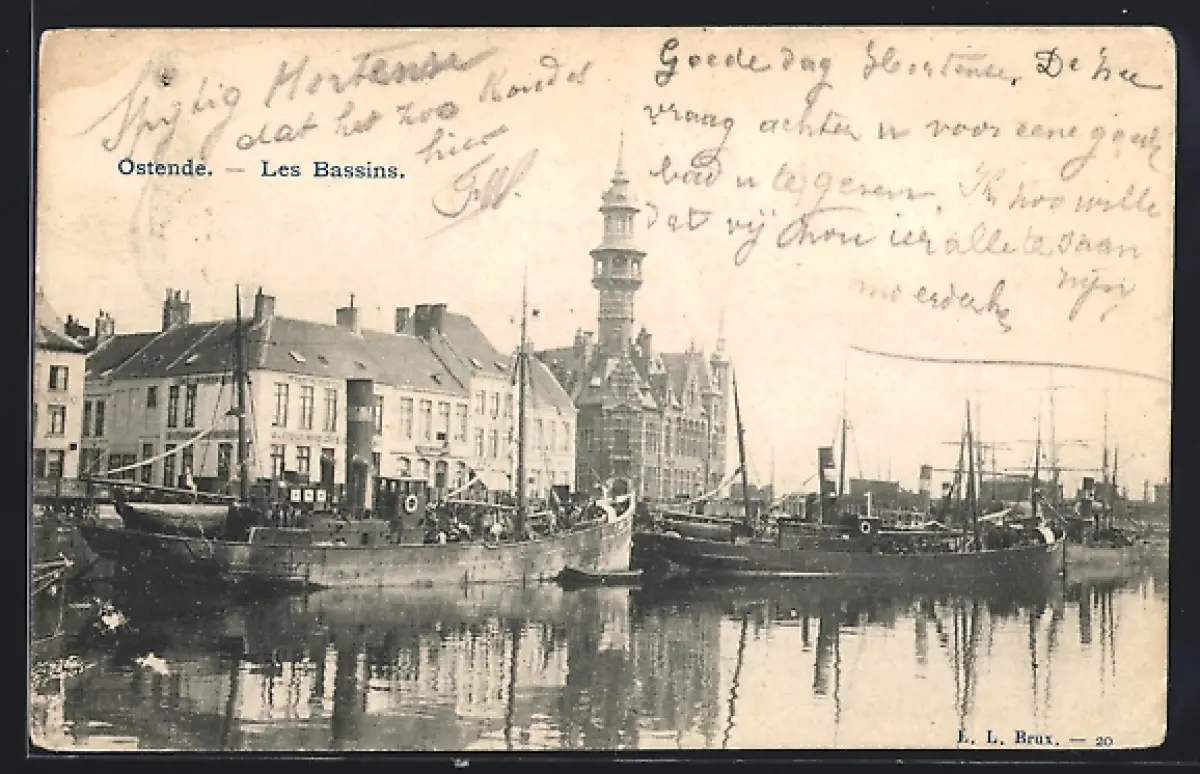 Spijtig Hortense
dat het zoo koud
hier
Ostende. — Les Bassins.
Goede dag Hortense, De Zee
vraag achter u voor eene goede
bad u te geven. Ik zoo wille
dat zij mou ier alle te saan
zijn
L. L. Brux. — 20